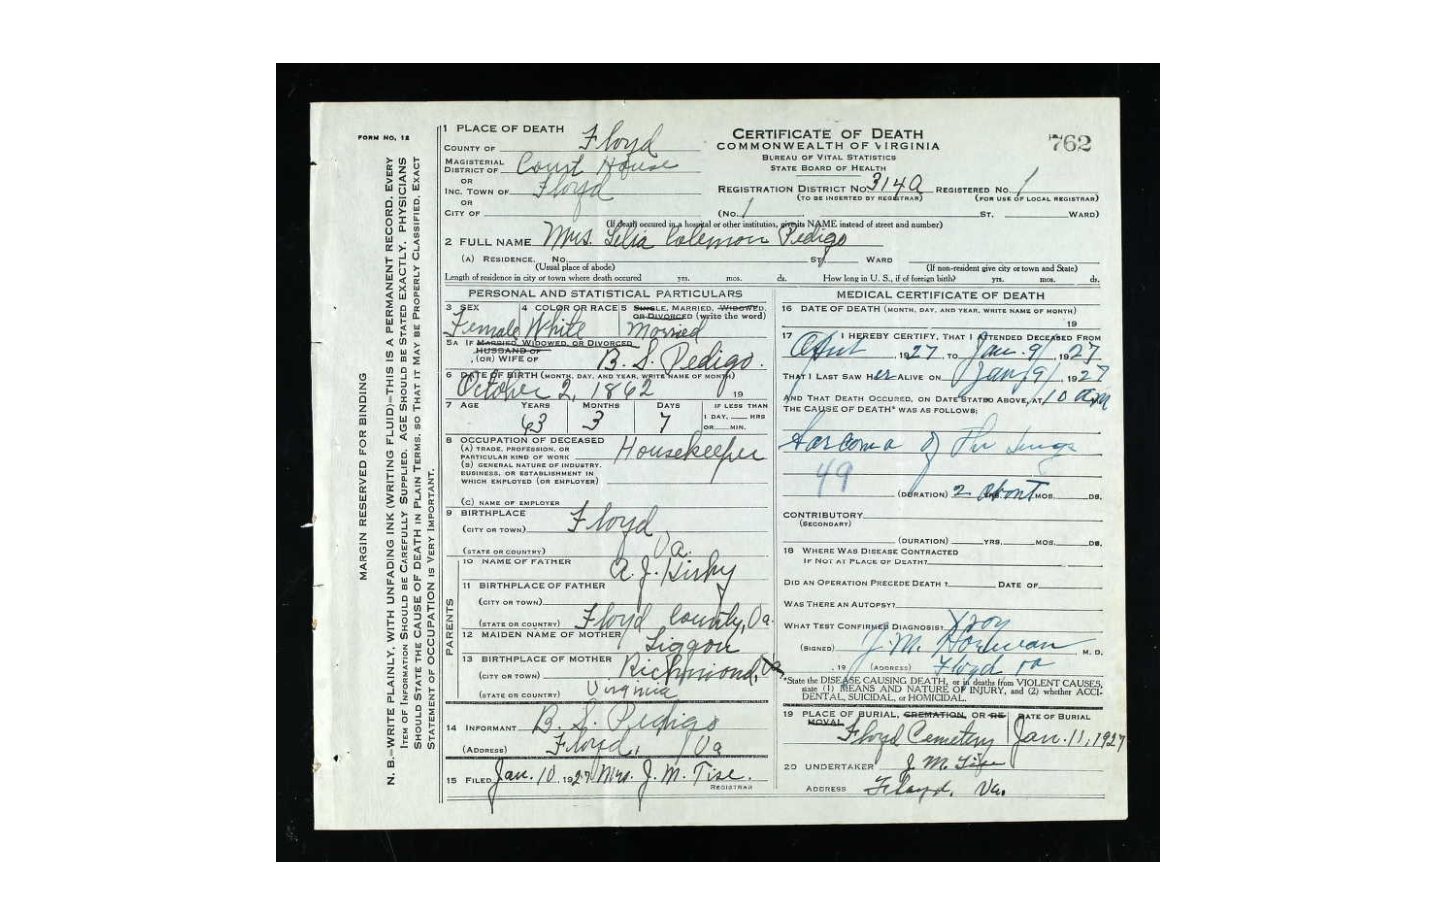 FORM NO. 12
MARGIN RESERVED FOR BINDING
N. B.—WRITE PLAINLY, WITH UNFADING INK (WRITING FLUID)—THIS IS A PERMANENT RECORD. EVERY
ITEM OF INFORMATION SHOULD BE CAREFULLY SUPPLIED. AGE SHOULD BE STATED EXACTLY. PHYSICIANS
SHOULD STATE THE CAUSE OF DEATH IN PLAIN TERMS, SO THAT IT MAY BE PROPERLY CLASSIFIED. EXACT
STATEMENT OF OCCUPATION IS VERY IMPORTANT.
1 PLACE OF DEATH
COUNTY OF Floyd
MAGISTERIAL DISTRICT OF Court House
OR
INC. TOWN OF Floyd
OR
CITY OF
CERTIFICATE OF DEATH
COMMONWEALTH OF VIRGINIA
BUREAU OF VITAL STATISTICS
STATE BOARD OF HEALTH
762
REGISTRATION DISTRICT NO. 314A REGISTERED NO. 1
(TO BE INSERTED BY REGISTRAR) (FOR USE OF LOCAL REGISTRAR)
(NO. 1 ST. WARD)
(If death occured in a hospital or other institution, give its NAME instead of street and number)
2 FULL NAME Mrs. Lelia Coleman Pedigo
(A) RESIDENCE. No. St. WARD
(Usual place of abode) (If non-resident give city or town and State)
Length of residence in city or town where death occured yrs. mos. ds. How long in U. S., if of foreign birth? yrs. mos. ds.
PERSONAL AND STATISTICAL PARTICULARS
3 SEX 4 COLOR OR RACE 5 SINGLE, MARRIED, WIDOWED, OR DIVORCED (write the word)
Female White Married
5A IF MARRIED, WIDOWED, OR DIVORCED
HUSBAND OF
(OR) WIFE OF B. S. Pedigo.
6 DATE OF BIRTH (MONTH, DAY, AND YEAR, WRITE NAME OF MONTH)
October 2, 1862 19
7 AGE YEARS MONTHS DAYS IF LESS THAN
1 DAY, HRS
OR MIN.
63 3 7
8 OCCUPATION OF DECEASED
(A) TRADE, PROFESSION, OR
PARTICULAR KIND OF WORK Housekeeper
(B) GENERAL NATURE OF INDUSTRY,
BUSINESS, OR ESTABLISHMENT IN
WHICH EMPLOYED (OR EMPLOYER)
(C) NAME OF EMPLOYER
9 BIRTHPLACE
(CITY OR TOWN) Floyd,
(STATE OR COUNTRY) Va.
PARENTS
10 NAME OF FATHER A. J. Kirby
11 BIRTHPLACE OF FATHER
(CITY OR TOWN)
(STATE OR COUNTRY) Floyd County, Va.
12 MAIDEN NAME OF MOTHER Liggon
13 BIRTHPLACE OF MOTHER
(CITY OR TOWN) Richmond, Va
(STATE OR COUNTRY) Virginia
14 INFORMANT B. S. Pedigo
(ADDRESS) Floyd, Va
15 FILED Jan. 10, 1927 Mrs. J. M. Tise.
REGISTRAR
MEDICAL CERTIFICATE OF DEATH
16 DATE OF DEATH (MONTH, DAY, AND YEAR, WRITE NAME OF MONTH)
19
17 I HEREBY CERTIFY, THAT I ATTENDED DECEASED FROM
, 1927, TO Jan. 9, 1927
THAT I LAST SAW Her ALIVE ON Jan. 9, 1927
AND THAT DEATH OCCURED, ON DATE STATED ABOVE, AT 10 am
THE CAUSE OF DEATH* WAS AS FOLLOWS:
Sarcoma of The Lungs
49
(DURATION) 2 YRS. about MOS. DS.
CONTRIBUTORY
(SECONDARY)
(DURATION) YRS. MOS. DS.
18 WHERE WAS DISEASE CONTRACTED
IF NOT AT PLACE OF DEATH?
DID AN OPERATION PRECEDE DEATH? DATE OF
WAS THERE AN AUTOPSY?
WHAT TEST CONFIRMED DIAGNOSIS? Xray
(SIGNED) J. M. M. D.
, 19 (ADDRESS) Floyd Va
*State the DISEASE CAUSING DEATH, or in deaths from VIOLENT CAUSES,
state (1) MEANS AND NATURE OF INJURY, and (2) whether ACCI-
DENTAL, SUICIDAL, or HOMICIDAL.
19 PLACE OF BURIAL, CREMATION, OR RE-MOVAL DATE OF BURIAL
Floyd Cemetery Jan. 11, 1927
20 UNDERTAKER J. M. Tise
ADDRESS Floyd, Va.